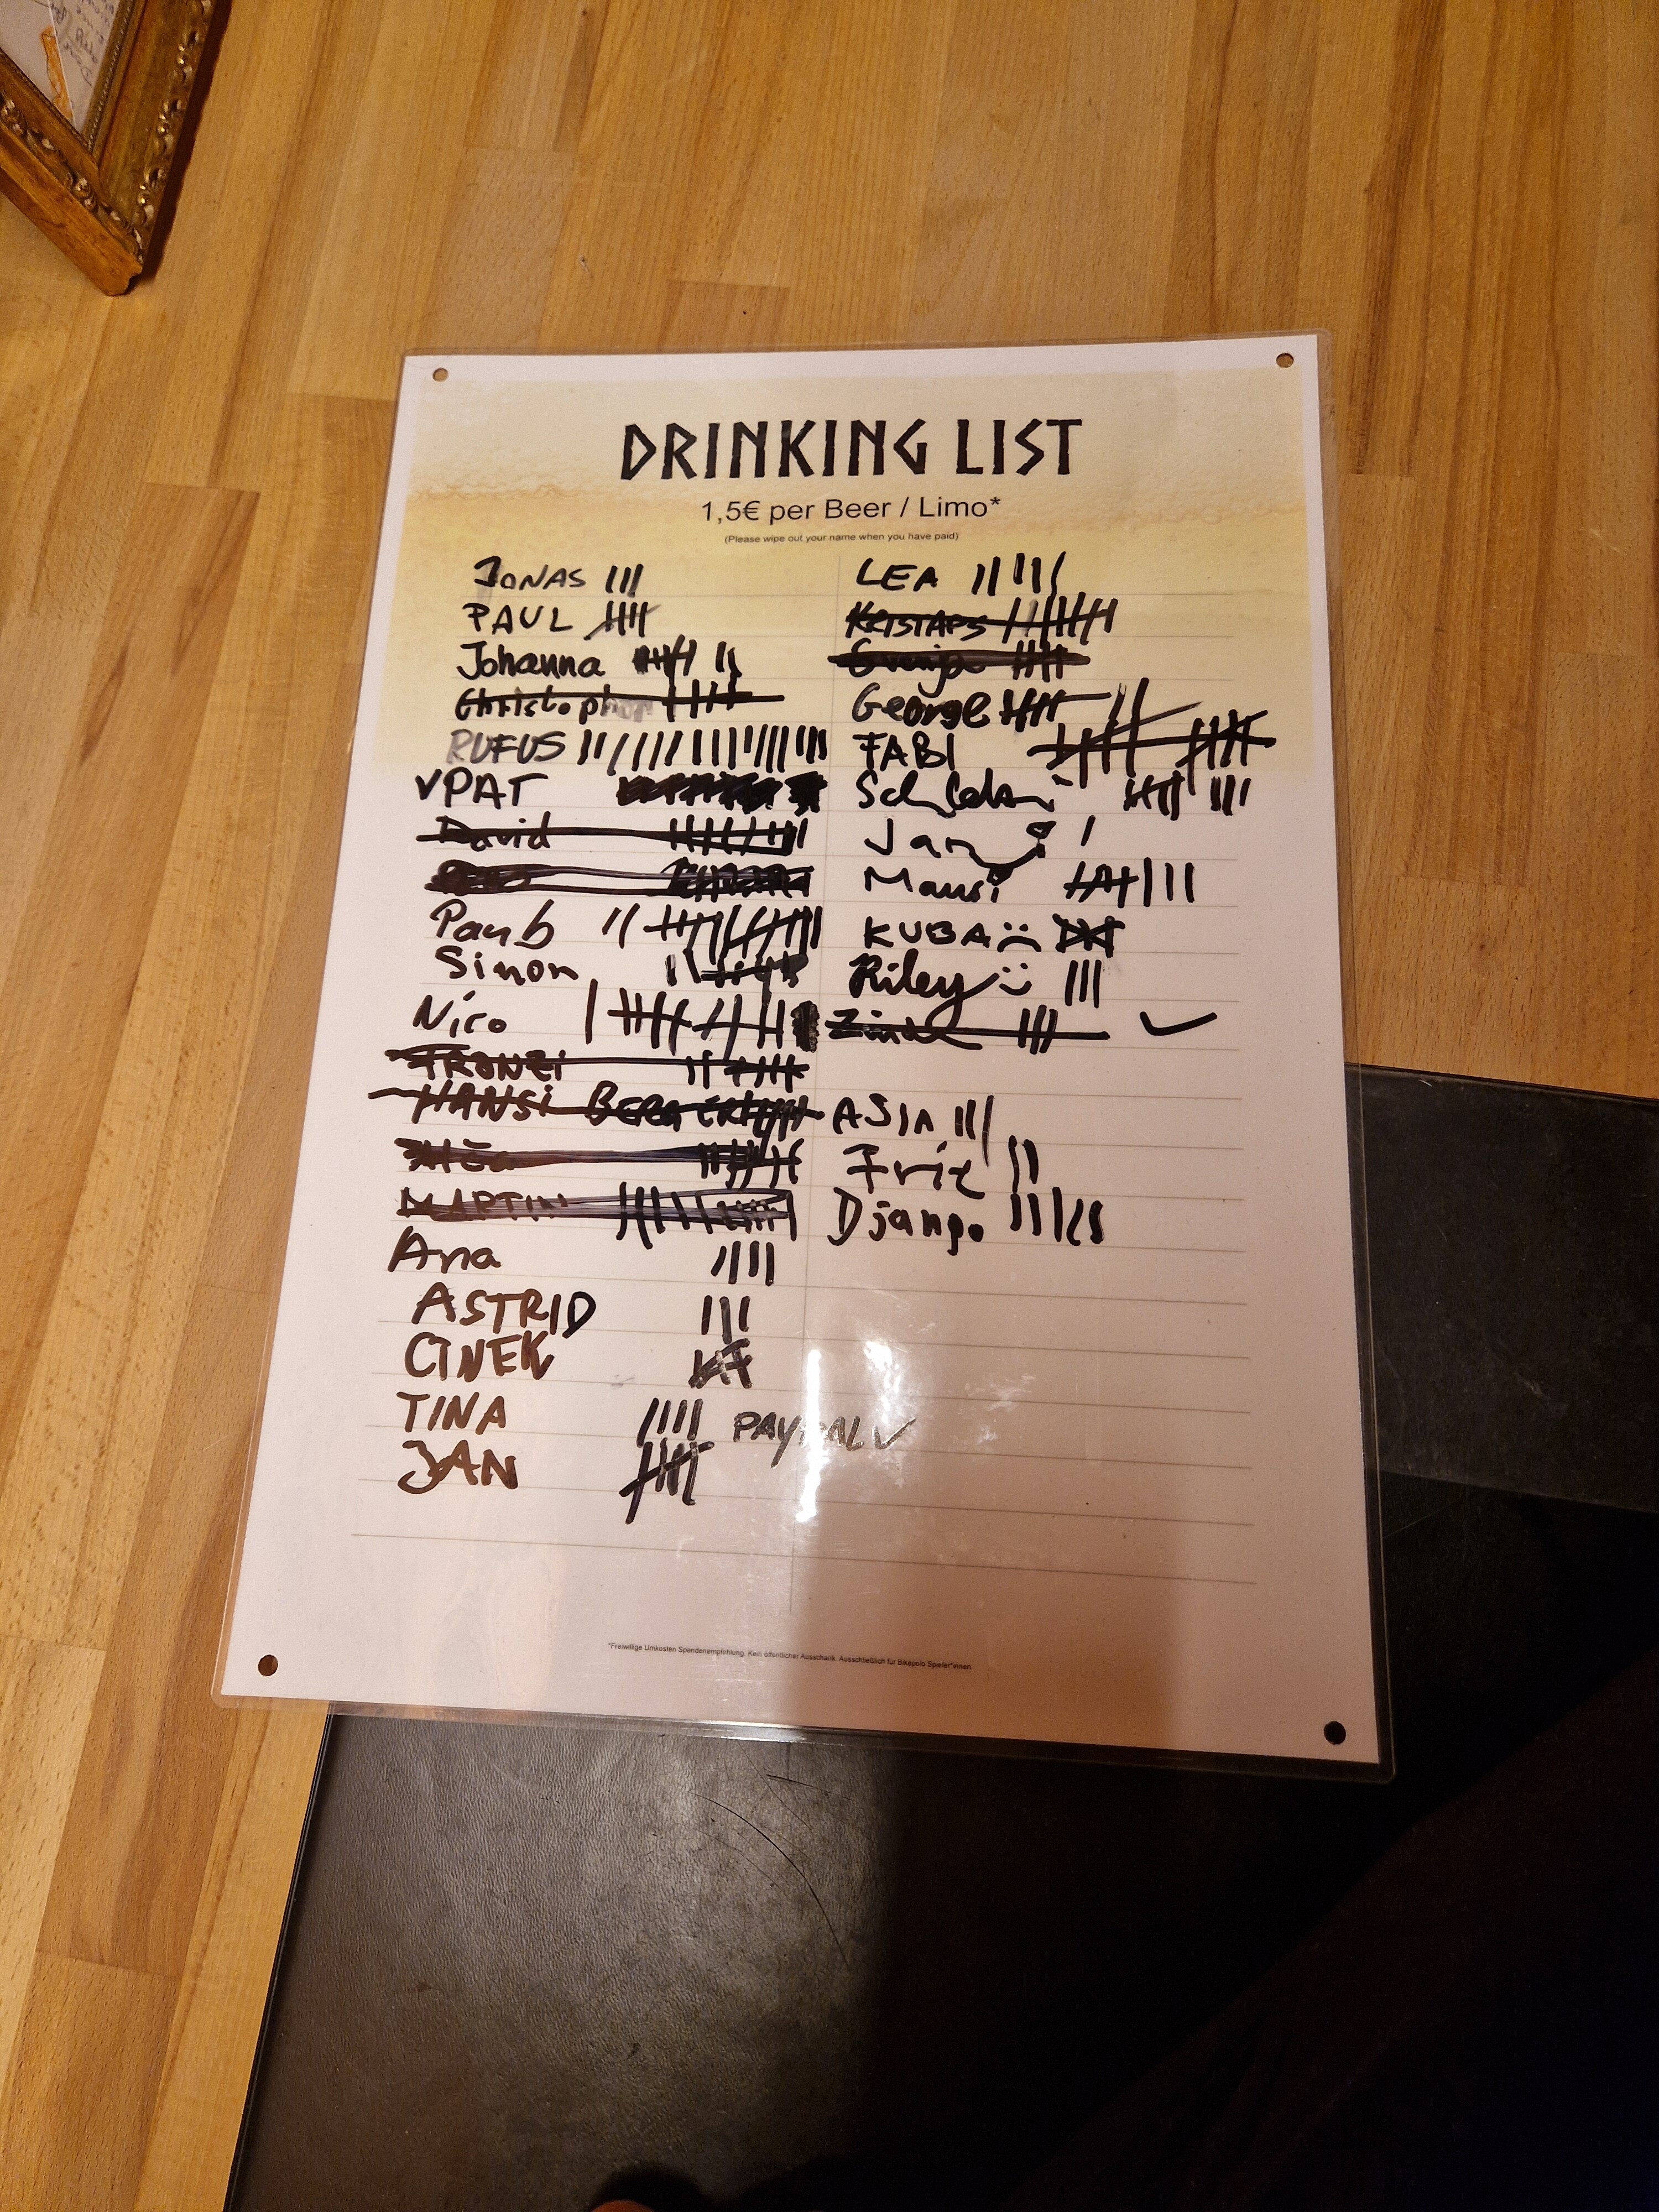 DRINKING LIST
1,5€ per Beer / Limo*
(Please wipe out your name when you have paid)
JONAS
PAUL
Johanna
Christopher
RUFUS
VPAT
David
Paub
Simon
Nico
FRONZI
HANSI BERGER
MARTIN
Ana
ASTRID
CINEK
TINA PAYPAL ✓
JAN
LEA
KRISTAPS
George
FABI
Jan
Mausi
KUBA
Riley
ASIA
Fritz
Django
*Freiwillige Umkosten Spendenempfehlung. Kein öffentlicher Ausschank. Ausschließlich für Bikepolo Spieler*innen